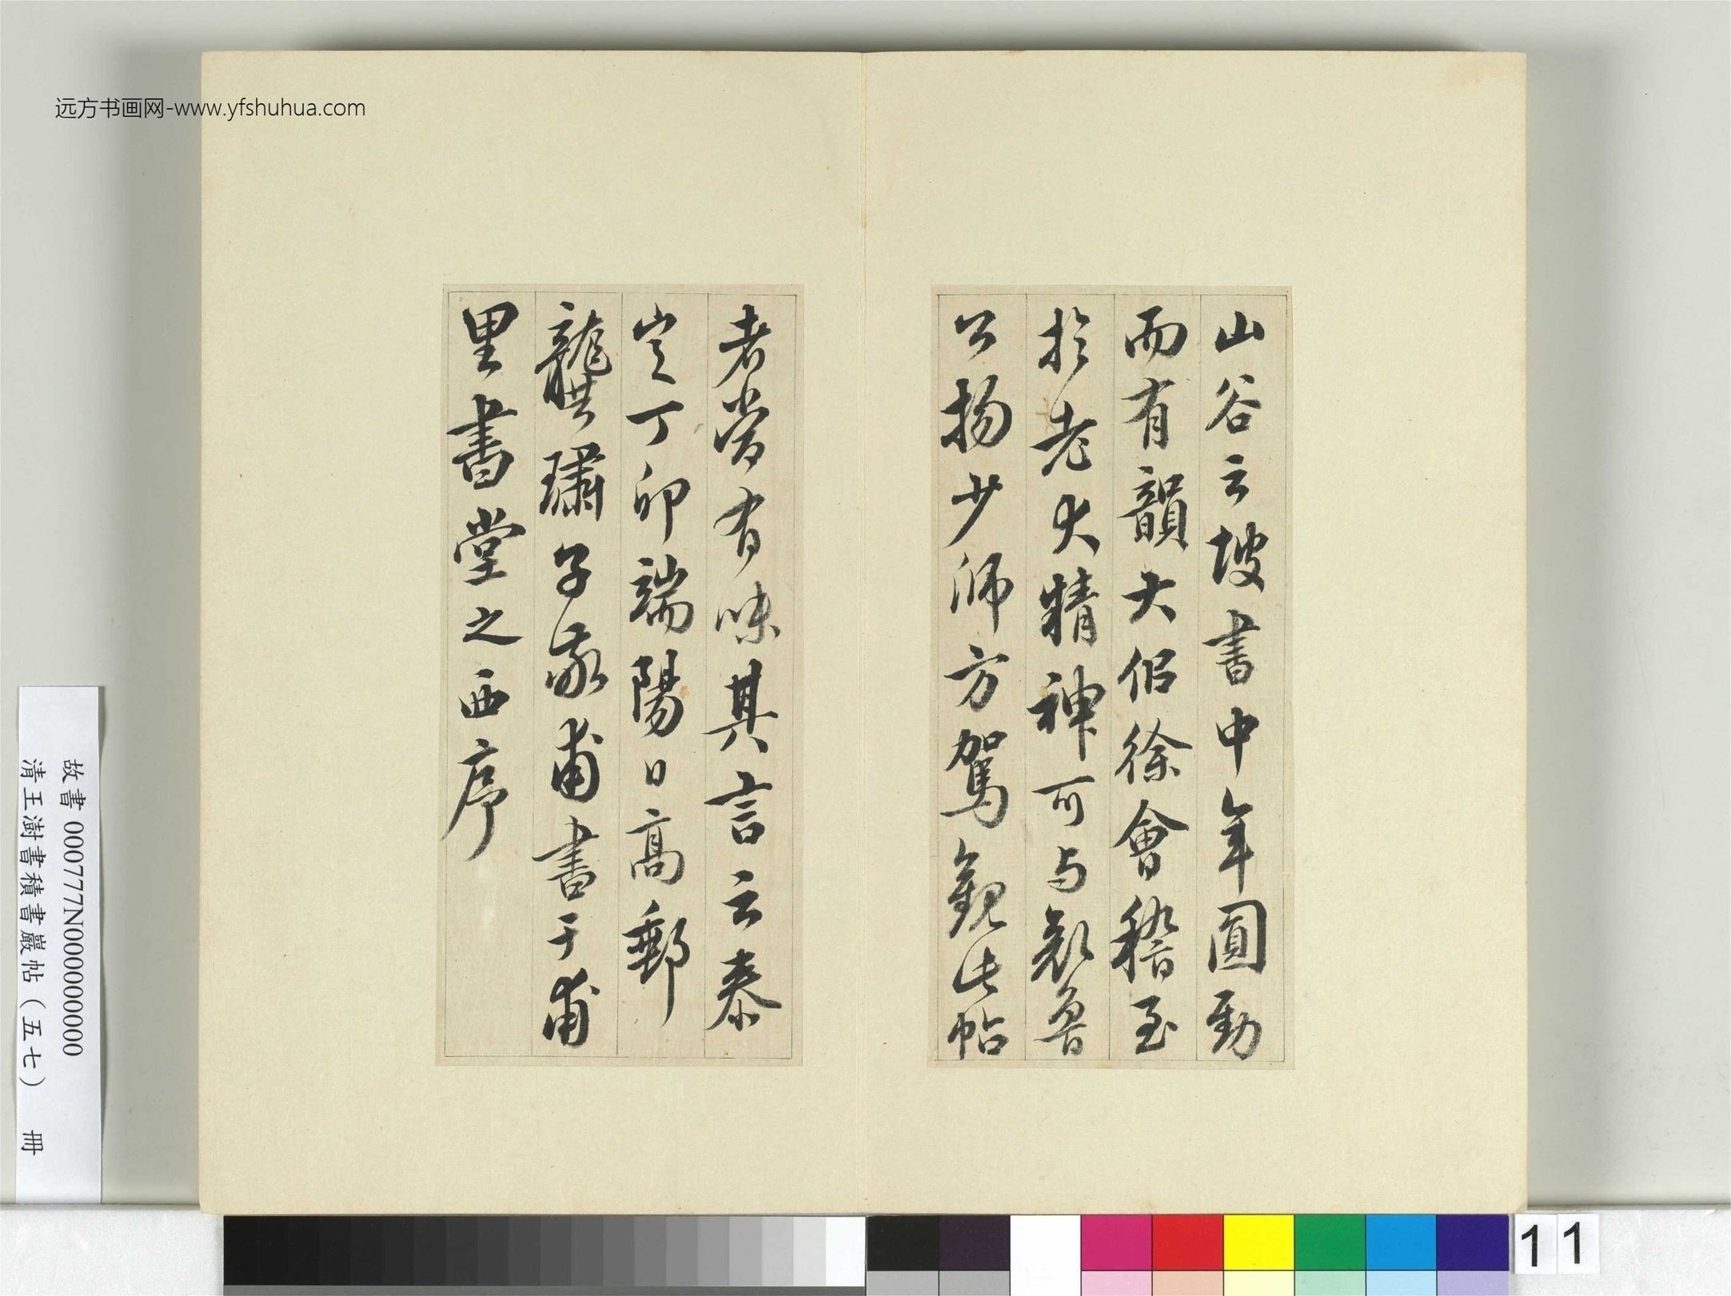 远方书画网-www.yfshuhua.com
山谷云坡書中年圓勁
而有韻大佀徐會稽至
於老大精神可与顏魯
公楊少師方駕觀此帖
者當有味其言云泰
定丁卯端陽日高郵
龔璛子敬甫書于甫
里書堂之西序
故書 000777N000000000
清王澍書積書巖帖（五七） 冊
11